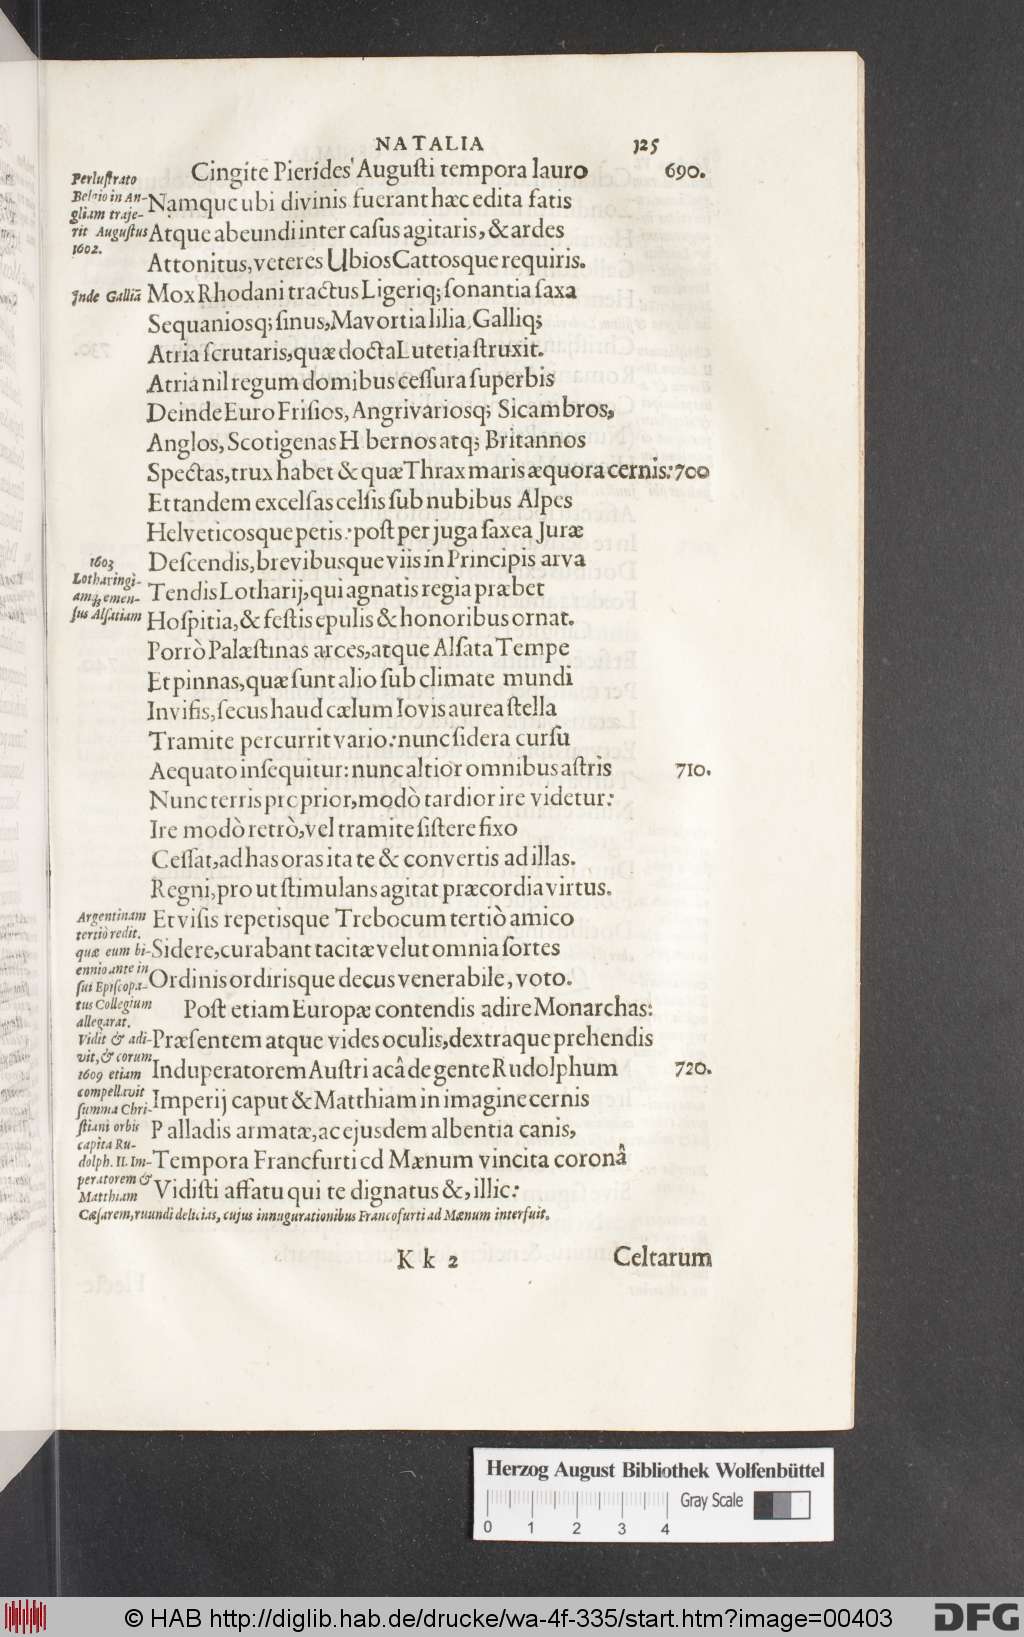 NATALIA 125
Cingite Pierides Augusti tempora lauro 690.
Perlustrato
Belgio in An-
gliam traje-
rit Augustus
1602.
Namque ubi divinis fuerant hæc edita fatis
Atque abeundi inter casus agitaris, & ardes
Attonitus, veteres Ubios Cattosque requiris.
Inde Galliā
Mox Rhodani tractus Ligeriq; sonantia saxa
Sequaniosq; sinus, Mavortia lilia, Galliq;
Atria scrutaris, quæ docta Lutetia struxit.
Atria nil regum domibus cessura superbis
Deinde Euro Frisios, Angrivariosq; Sicambros,
Anglos, Scotigenas H bernos atq; Britannos
Spectas, trux habet & quæ Thrax maris æquora cernis: 700
Et tandem excelsas celsis sub nubibus Alpes
Helveticosque petis: post per juga saxea Juræ
1603
Lotharingi-
amq; emen-
sus Alsatiam
Descendis, brevibusque viis in Principis arva
Tendis Lotharij, qui agnatis regia præbet
Hospitia, & festis epulis & honoribus ornat.
Porrò Palæstinas arces, atque Alsata Tempe
Et pinnas, quæ sunt alio sub climate mundi
Invisis, secus haud cælum Iovis aurea stella
Tramite percurrit vario: nunc sidera cursu
Aequato insequitur: nunc altior omnibus astris 710.
Nunc terris prc prior, modò tardior ire videtur:
Ire modò retrò, vel tramite sistere fixo
Cessat, ad has oras ita te & convertis ad illas.
Regni, pro ut stimulans agitat præcordia virtus.
Argentinam
tertiò redit.
quæ eum bi-
ennio ante in
sui Episcopa-
tus Collegium
allegarat.
Et visis repetisque Trebocum tertiò amico
Sidere, curabant tacitæ velut omnia sortes
Ordinis ordirisque decus venerabile, voto.
Post etiam Europæ contendis adire Monarchas:
Vidit & adi-
vit, & eorum
1609 etiam
compellavit
summa Chri-
stiani orbis
capita Ru-
dolph. II. Im-
peratorem &
Matthiam
Cæsarem, mundi delicias, cujus innugurationibus Francofurti ad Mænum interfuit.
Præsentem atque vides oculis, dextraque prehendis
Induperatorem Austri acâ de gente Rudolphum 720.
Imperij caput & Matthiam in imagine cernis
Palladis armatæ, ac ejusdem albentia canis,
Tempora Francfurti cd Mænum vincita coronâ
Vidisti affatu qui te dignatus &, illic:
K k 2 Celtarum
Herzog August Bibliothek Wolfenbüttel
Gray Scale
0 1 2 3 4
© HAB http://diglib.hab.de/drucke/wa-4f-335/start.htm?image=00403
DFG